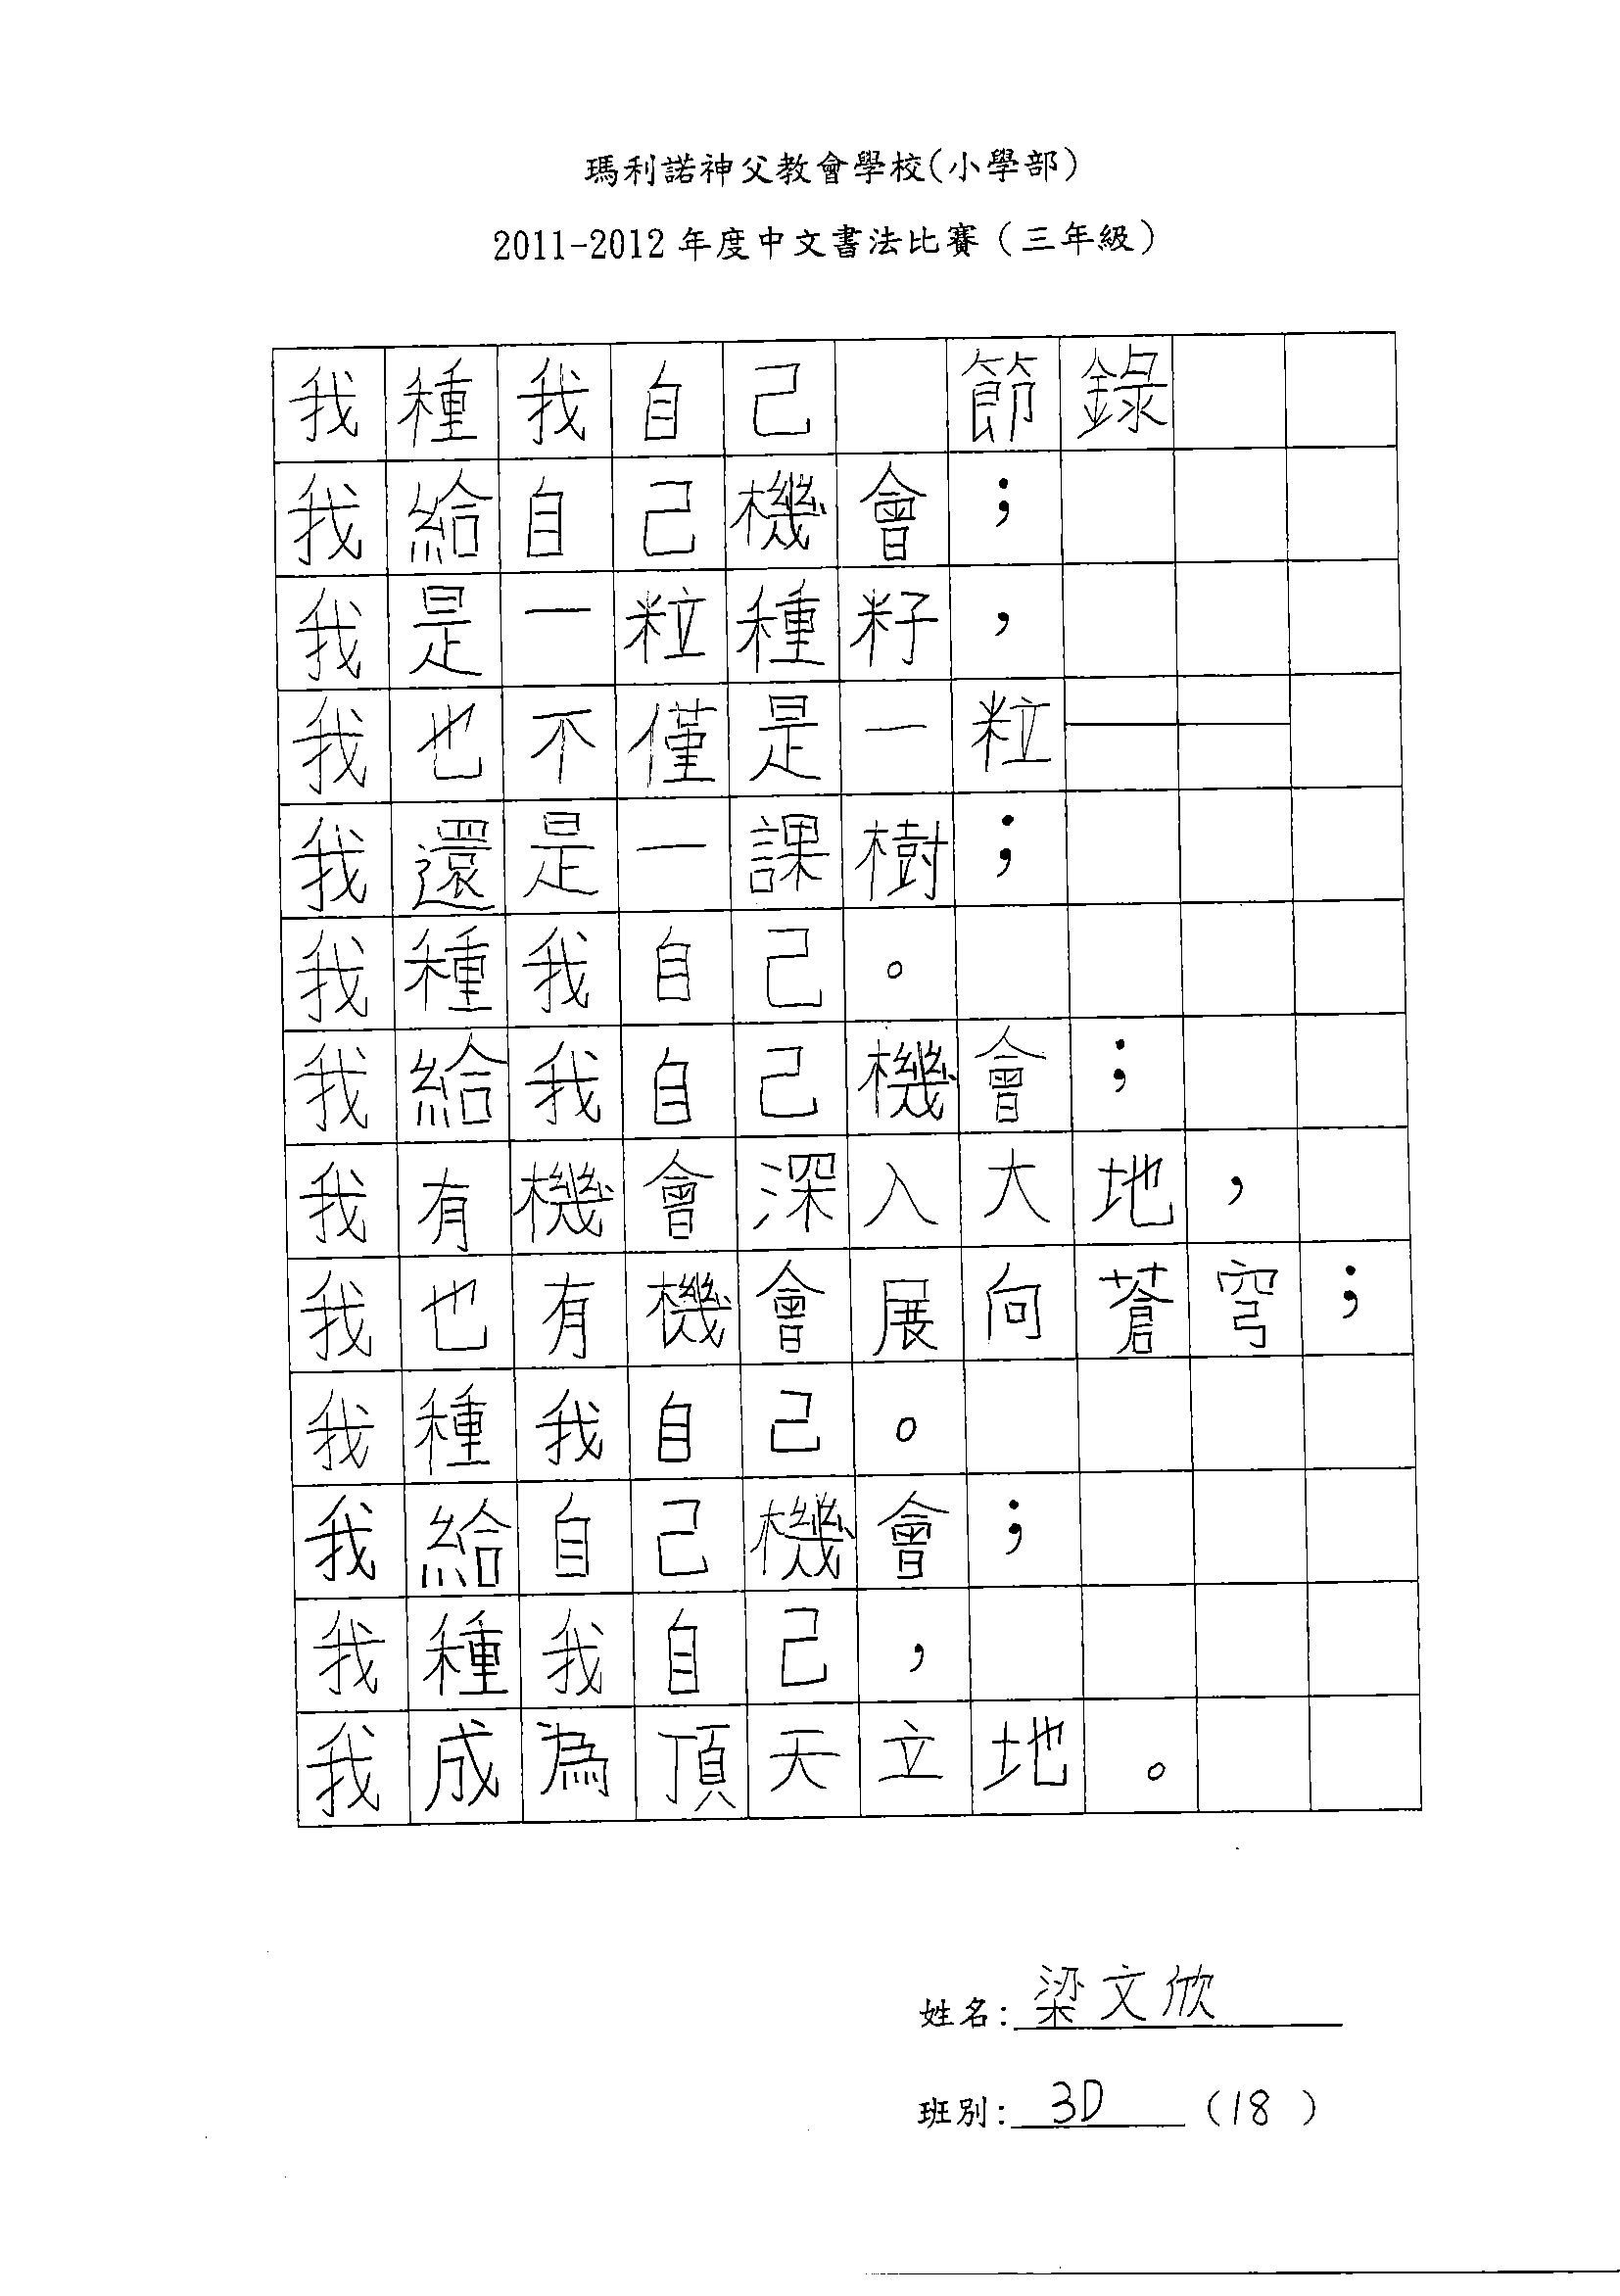 瑪利諾神父教會學校(小學部)
2011-2012 年度中文書法比賽（三年級）
我種我自己　節錄
我給自己機會；
我是一粒種籽，
我也不僅是一粒——
我還是一課樹；
我種我自己。
我給我自己機會；
我有機會深入大地，
我也有機會展向蒼穹；
我種我自己。
我給自己機會；
我種我自己，
我成為頂天立地。
姓名：梁文欣
班別：3D （18）